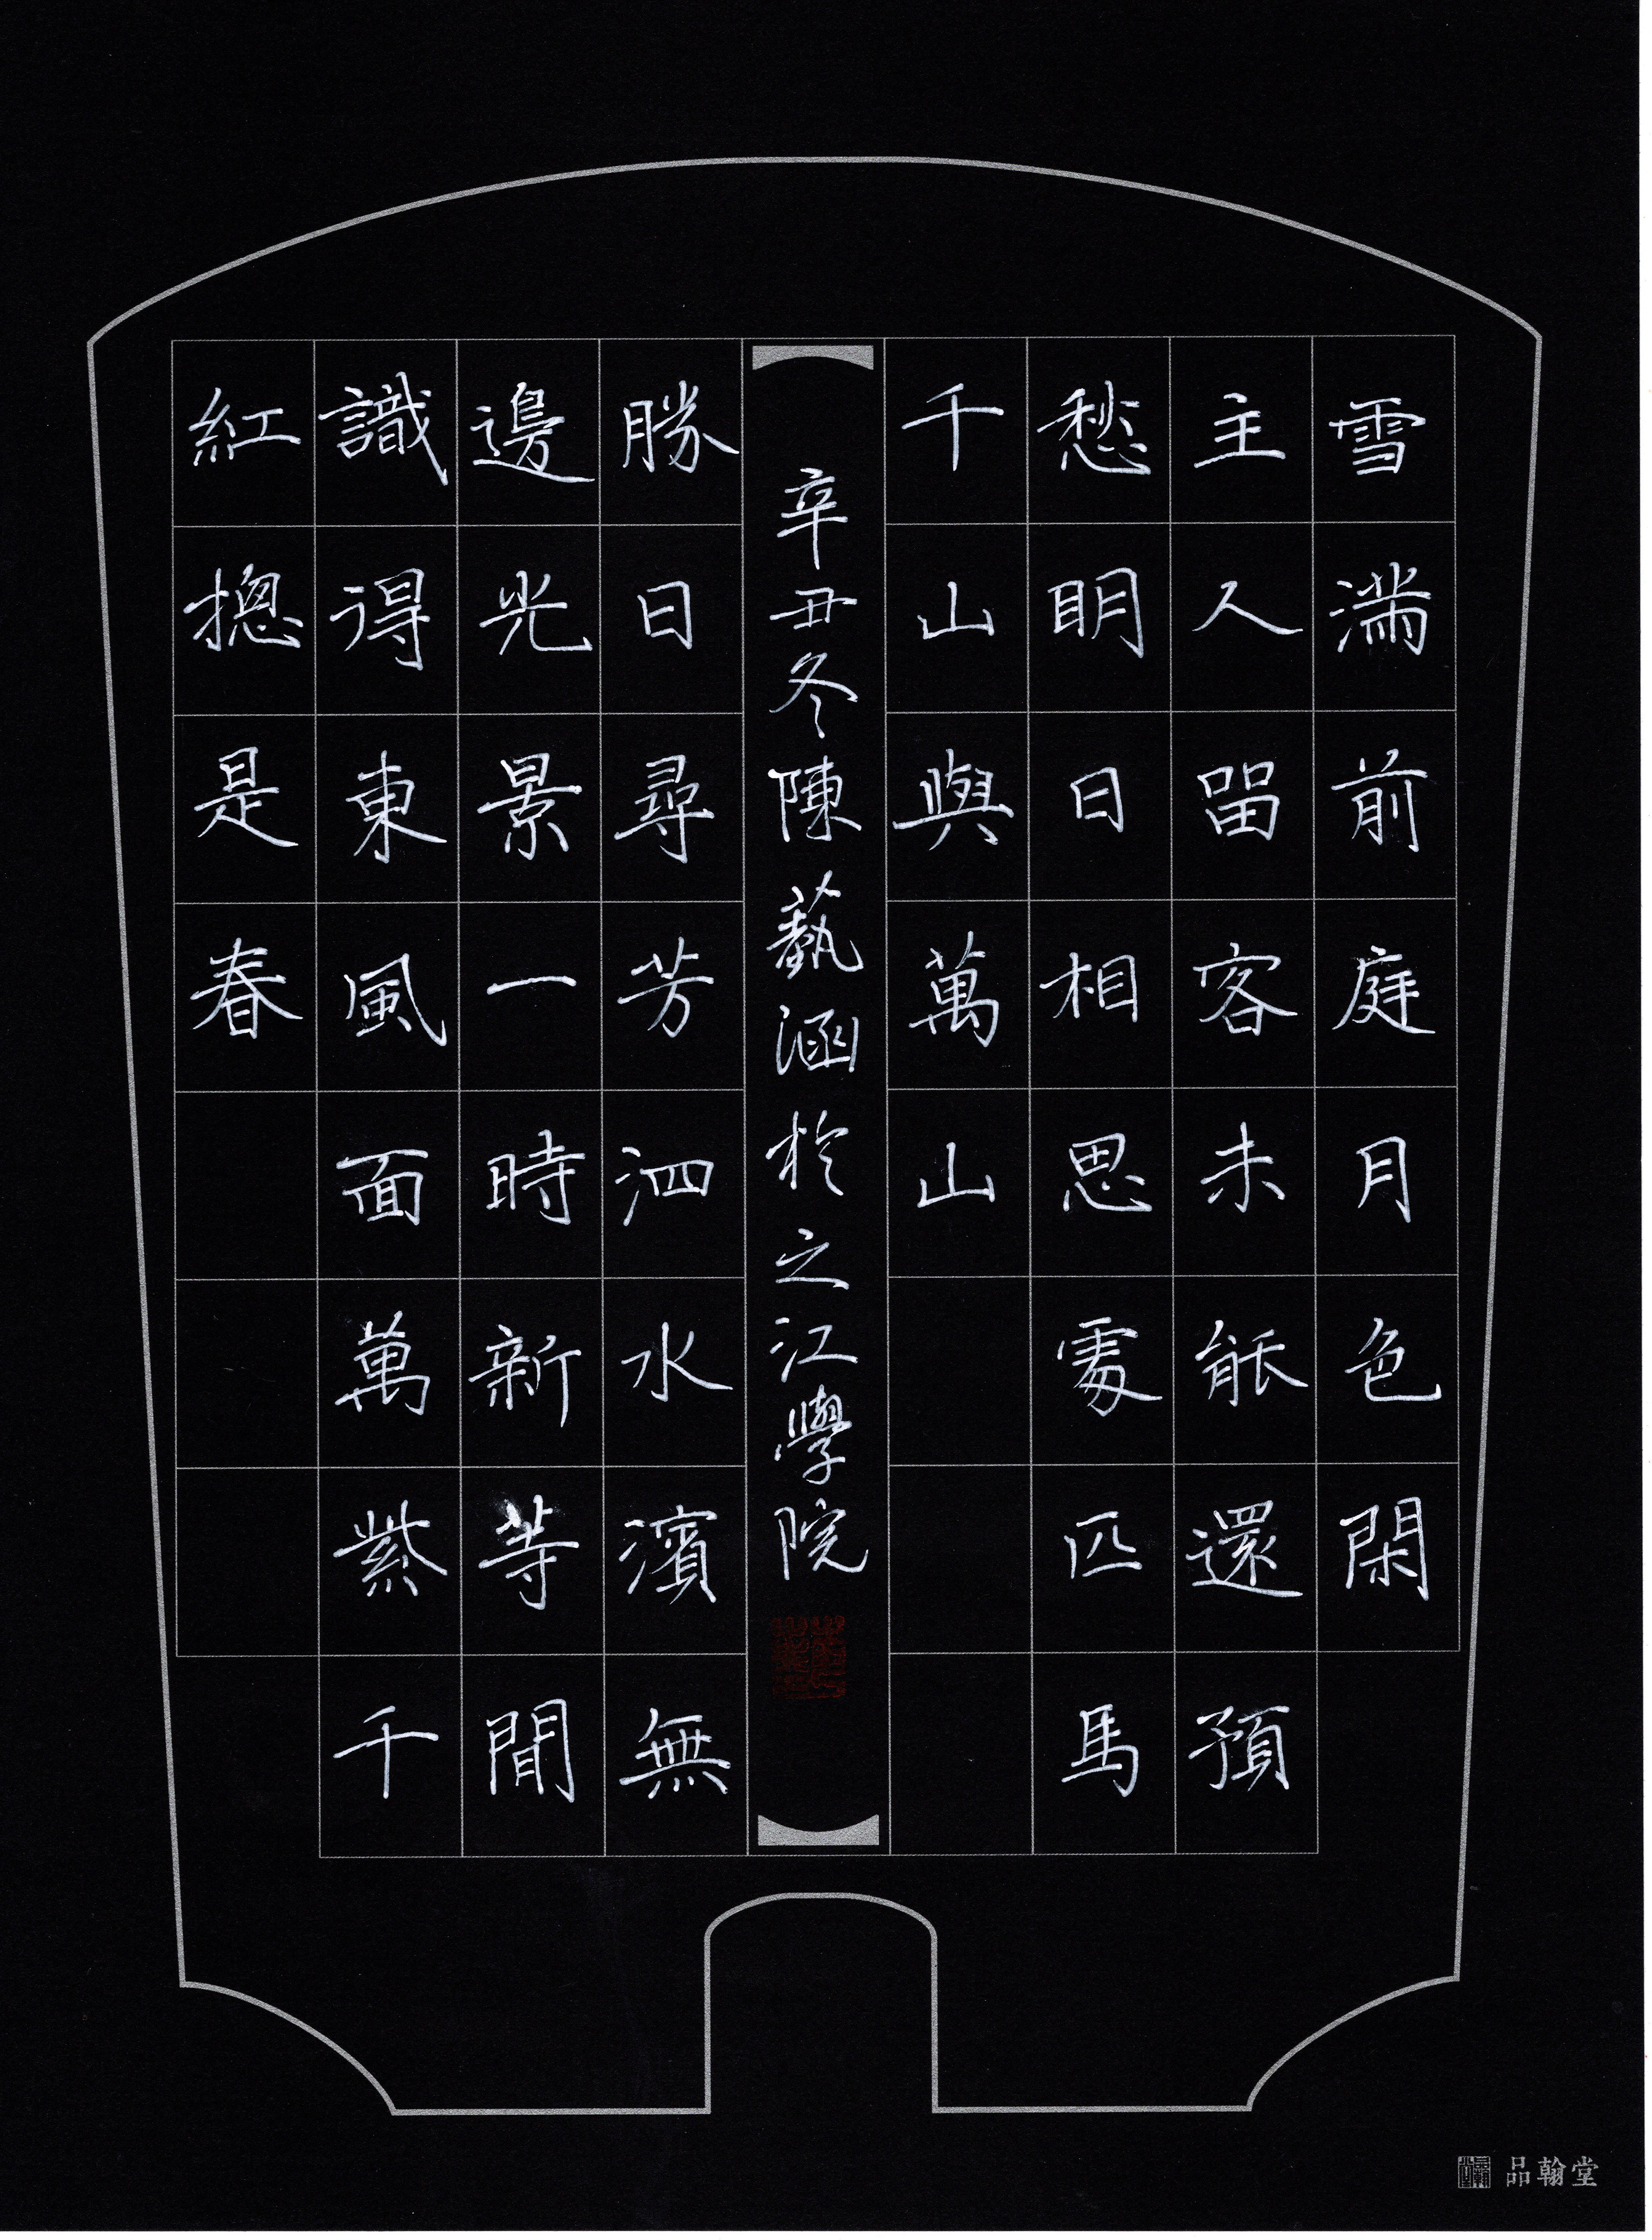 雪滿前庭月色閑
主人留客未能還預
愁明日相思處匹馬
千山與萬山
辛丑冬陳藝涵於之江學院
勝日尋芳泗水濱無
邊光景一時新等閒
識得東風面萬紫千
紅摠是春
品翰堂